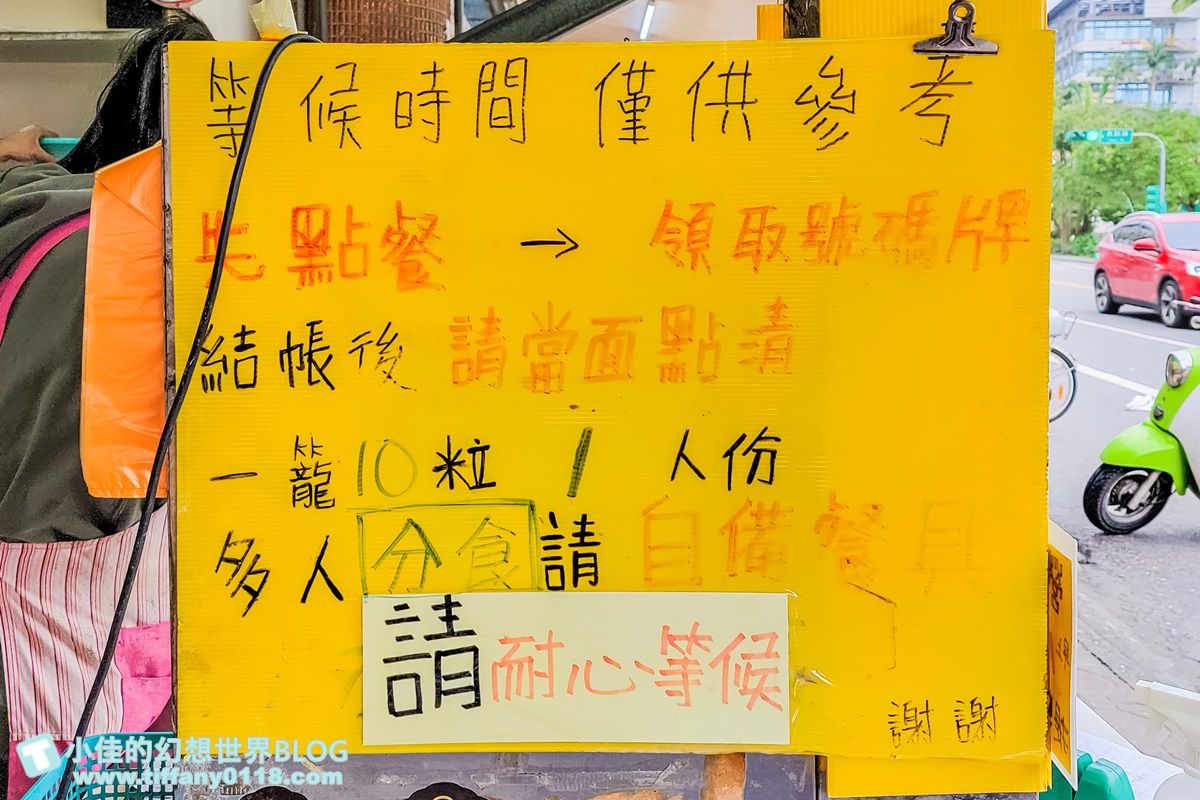 等候時間 僅供參考
先點餐 → 領取號碼牌
結帳後 請當面點清
一籠10粒 1人份
多人分食請 自備餐具
請耐心等候
謝謝
小佳的幻想世界BLOG
www.tiffany0118.com